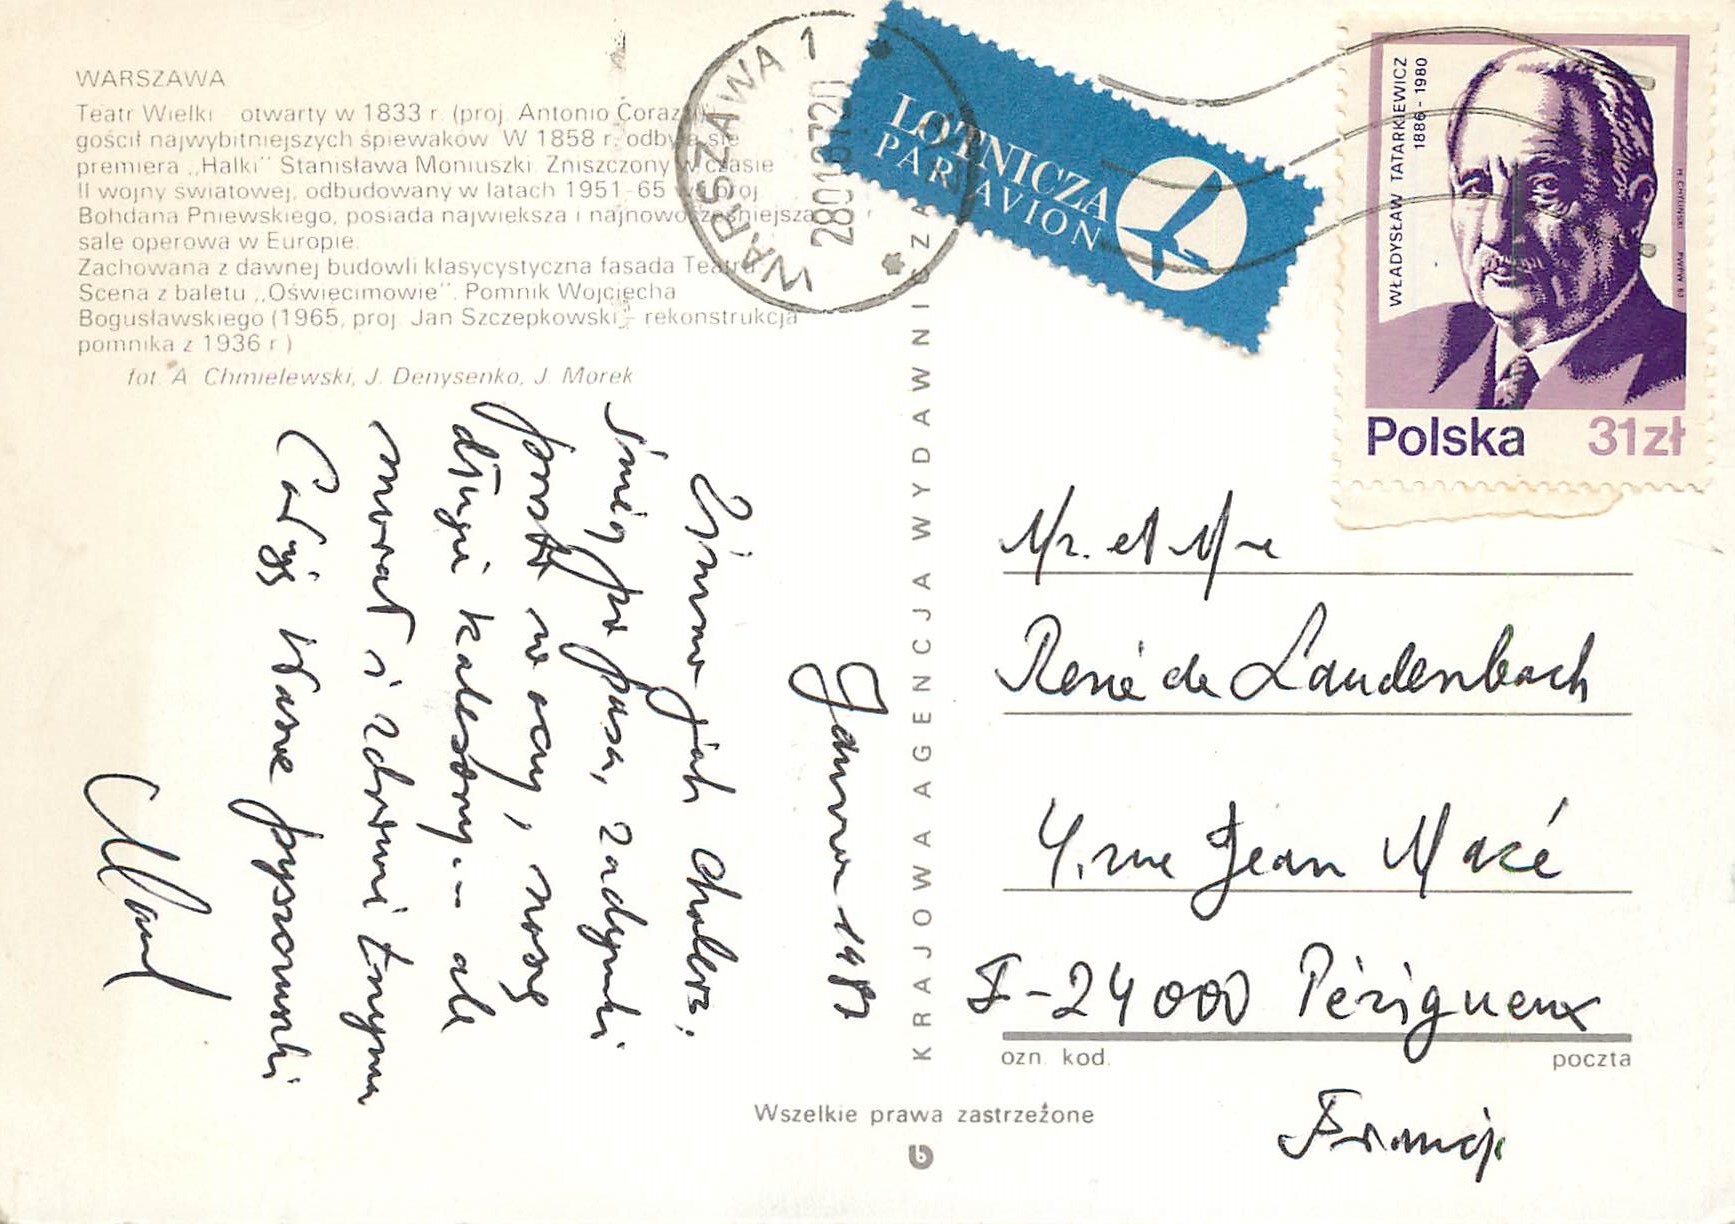 WARSZAWA
Teatr Wielki otwarty w 1833 r. (proj. Antonio Corazzi)
gościł najwybitniejszych śpiewaków. W 1858 r. odbyła się
premiera „Halki” Stanisława Moniuszki. Zniszczony w czasie
II wojny światowej, odbudowany w latach 1951-65 wg proj.
Bohdana Pniewskiego, posiada największą i najnowocześniejszą
salę operową w Europie.
Zachowana z dawnej budowli klasycystyczna fasada Teatru.
Scena z baletu „Oświęcimowie”. Pomnik Wojciecha
Bogusławskiego (1965, proj. Jan Szczepkowski – rekonstrukcja
pomnika z 1936 r.)
fot. A. Chmielewski, J. Denysenko, J. Morek
WARSZAWA 1
LOTNICZA
PAR AVION
WŁADYSŁAW TATARKIEWICZ
1886-1980
Polska 31zł
1987
Zima jak cholera:
śnieg po pasa, zadymki
prosto w oczy, noszę
długie kalesony... ale
mimo i trzyma
Całuję Wasze
KRAJOWA AGENCJA WYDAWNICZA
Mr. et Me
René de Laudenbach
4, rue Jean Macé
F-24000 Périgueux
ozn. kod. poczta
Francja
Wszelkie prawa zastrzeżone